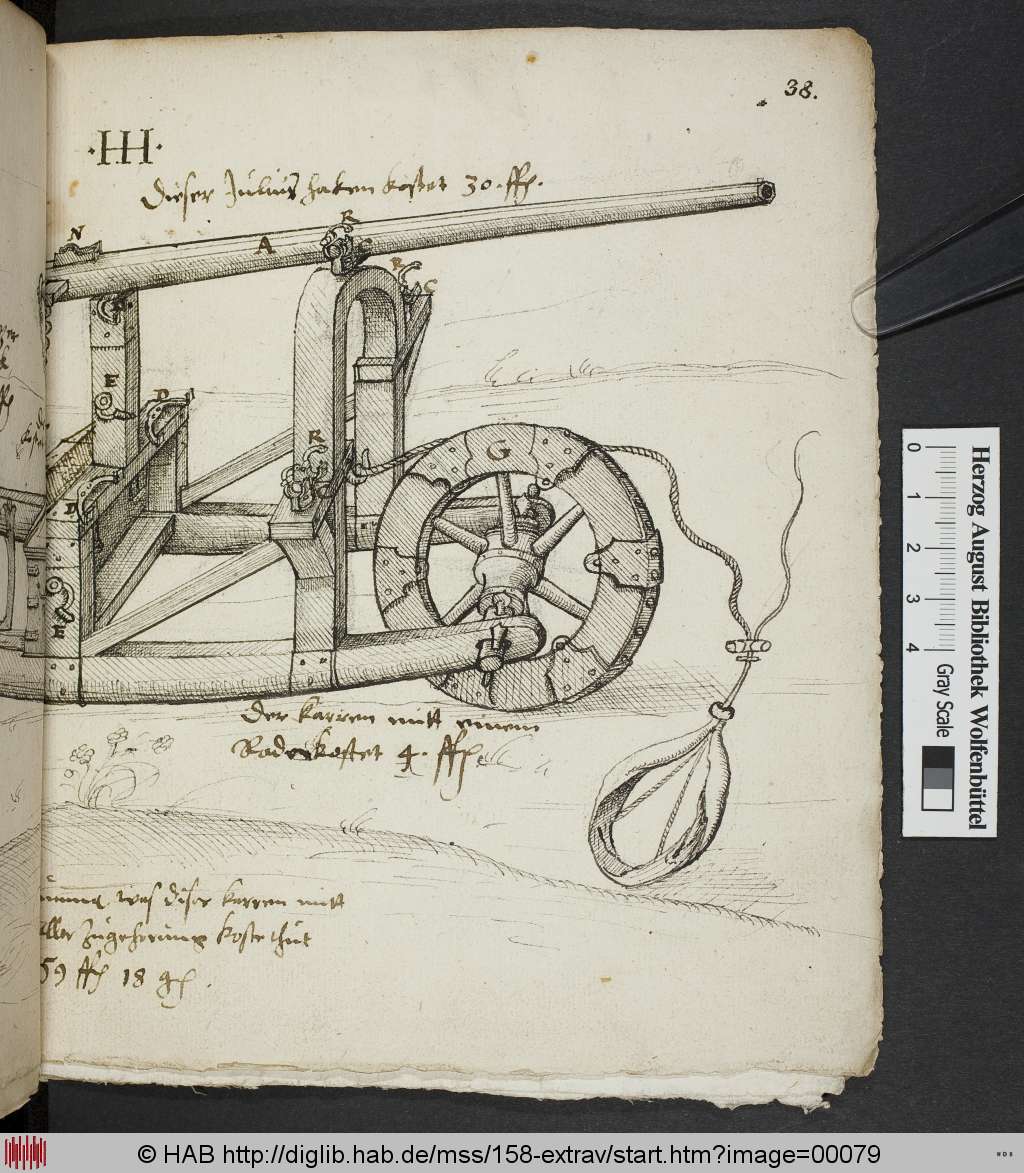 38.
·HH·
Dieser Julius haken kostet 30 ffl.
N
A
R
C
R
C
E
D
R
G
D
E
Der karren mitt einem
Rade kostet 4. ffl.
was diser karren mitt
aller Zugehorung koste thut
59 ffl 18 gl.
0 1 2 3 4
Herzog August Bibliothek Wolfenbüttel
Gray Scale
© HAB http://diglib.hab.de/mss/158-extrav/start.htm?image=00079